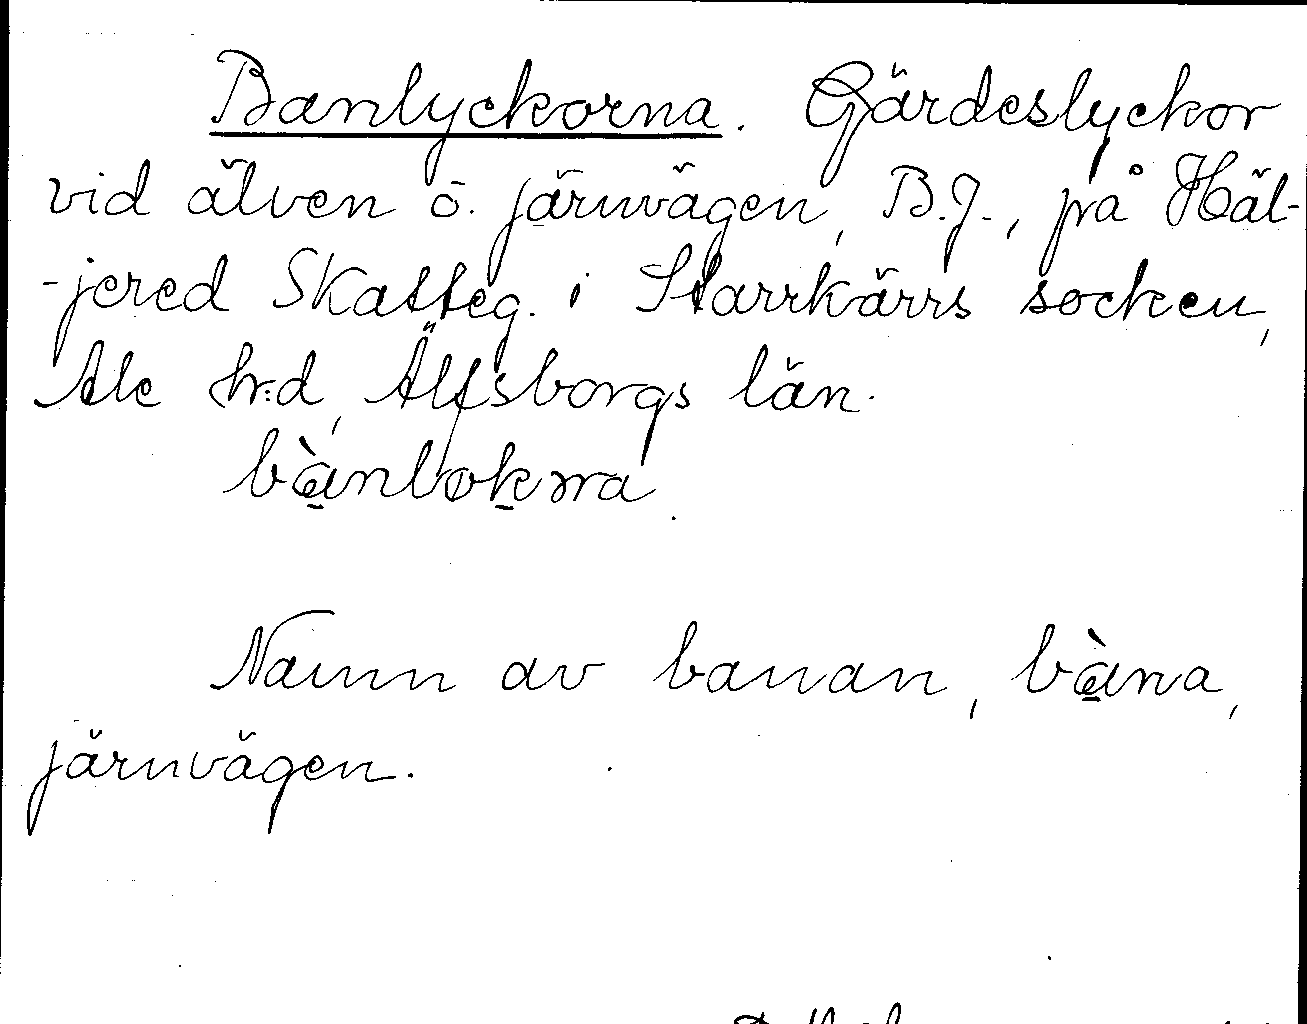 Banlyckorna. Gärdeslyckor
vid älven ö. järnvägen, B.J., på Häl-
-jered Skatteg. i Starrkärrs socken,
Ale hrd, Älfsborgs län.
bànløkɐrna
Namn av banan, bàna,
järnvägen.